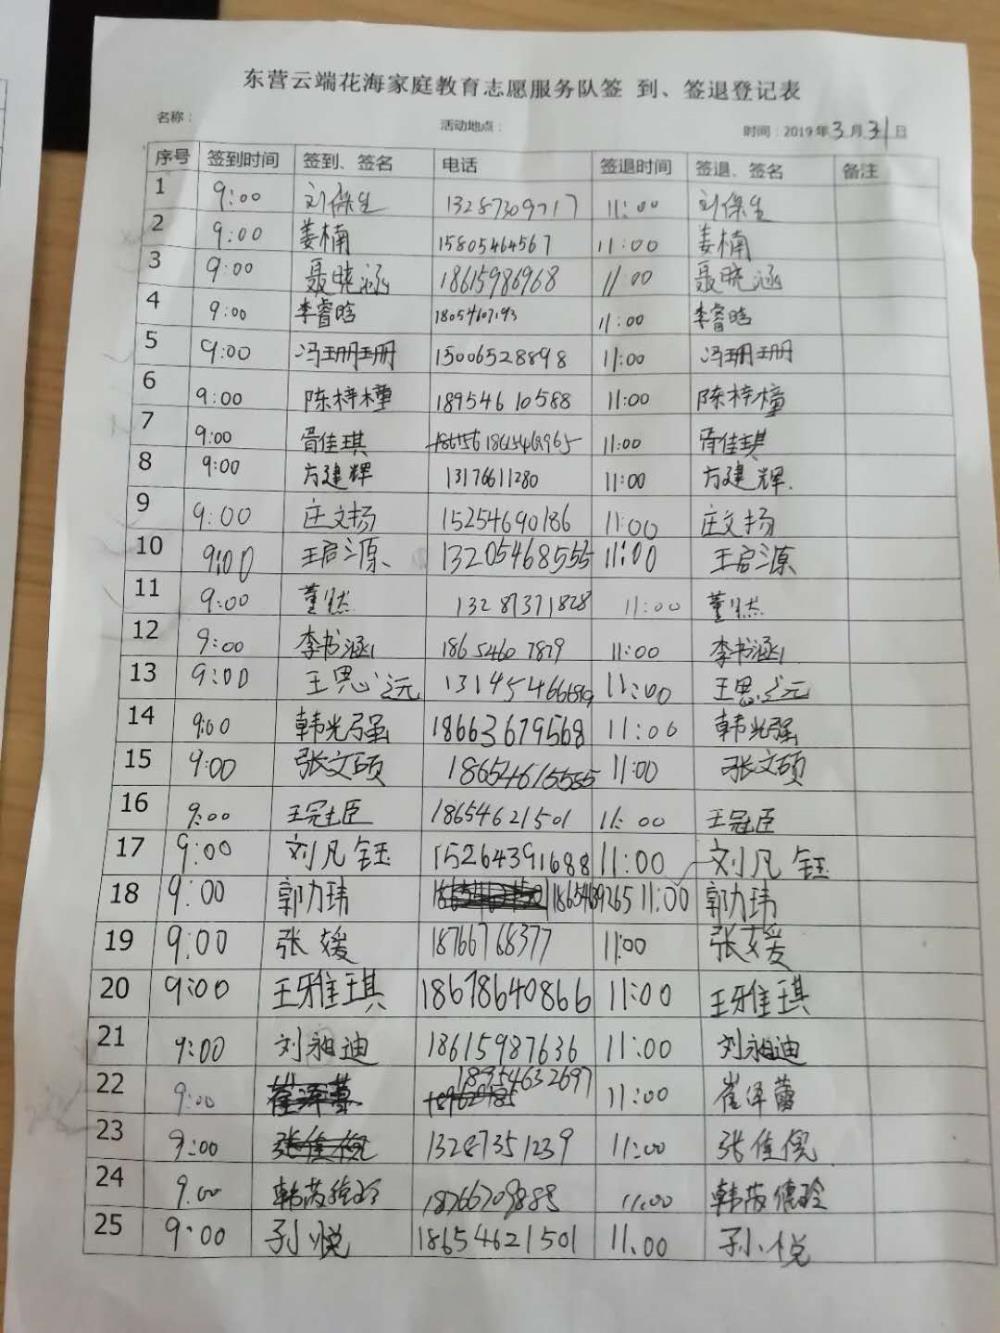 东营云端花海家庭教育志愿服务队签 到、签退登记表
名称： 活动地点： 时间：2019年3月31日
序号 签到时间 签到、签名 电话 签退时间 签退、签名 备注
1 9:00 刘保生 13287309717 11:00 刘保生
2 9:00 姜楠 15805464567 11:00 姜楠
3 9:00 聂晓涵 18615986968 11:00 聂晓涵
4 9:00 李睿晗 11:00 李睿晗
5 9:00 冯珊珊 15006528898 11:00 冯珊珊
6 9:00 陈梓橦 18954610588 11:00 陈梓橦
7 9:00 胥佳琪 11:00 胥佳琪
8 9:00 方建辉 13176611280 11:00 方建辉.
9 9:00 庄文扬 15254690186 11:00 庄文扬
10 9:00 王启源 13205468555 11:00 王启源
11 9:00 董 13287371828 11:00 董
12 9:00 李书涵 18654607879 11:00 李书涵
13 9:00 王思远 11:00 王思远
14 9:00 韩光强 18663679568 11:00 韩光强
15 9:00 张文硕 18654615555 11:00 张文硕
16 9:00 王冠臣 18654621501 11:00 王冠臣
17 9:00 刘凡钰 15264391688 11:00 刘凡钰
18 9:00 郭力玮 11:00 郭力玮
19 9:00 张媛 18766768377 11:00 张媛
20 9:00 王雅琪 18678640866 11:00 王雅琪
21 9:00 刘昶迪 18615987636 11:00 刘昶迪
22 9:00 18954632697 11:00 崔泽蕾
23 9:00 张佳倪 13287351239 11:00 张佳倪
24 9:00 韩 18766709888 11:00 韩
25 9:00 孙悦 18654621501 11:00 孙悦